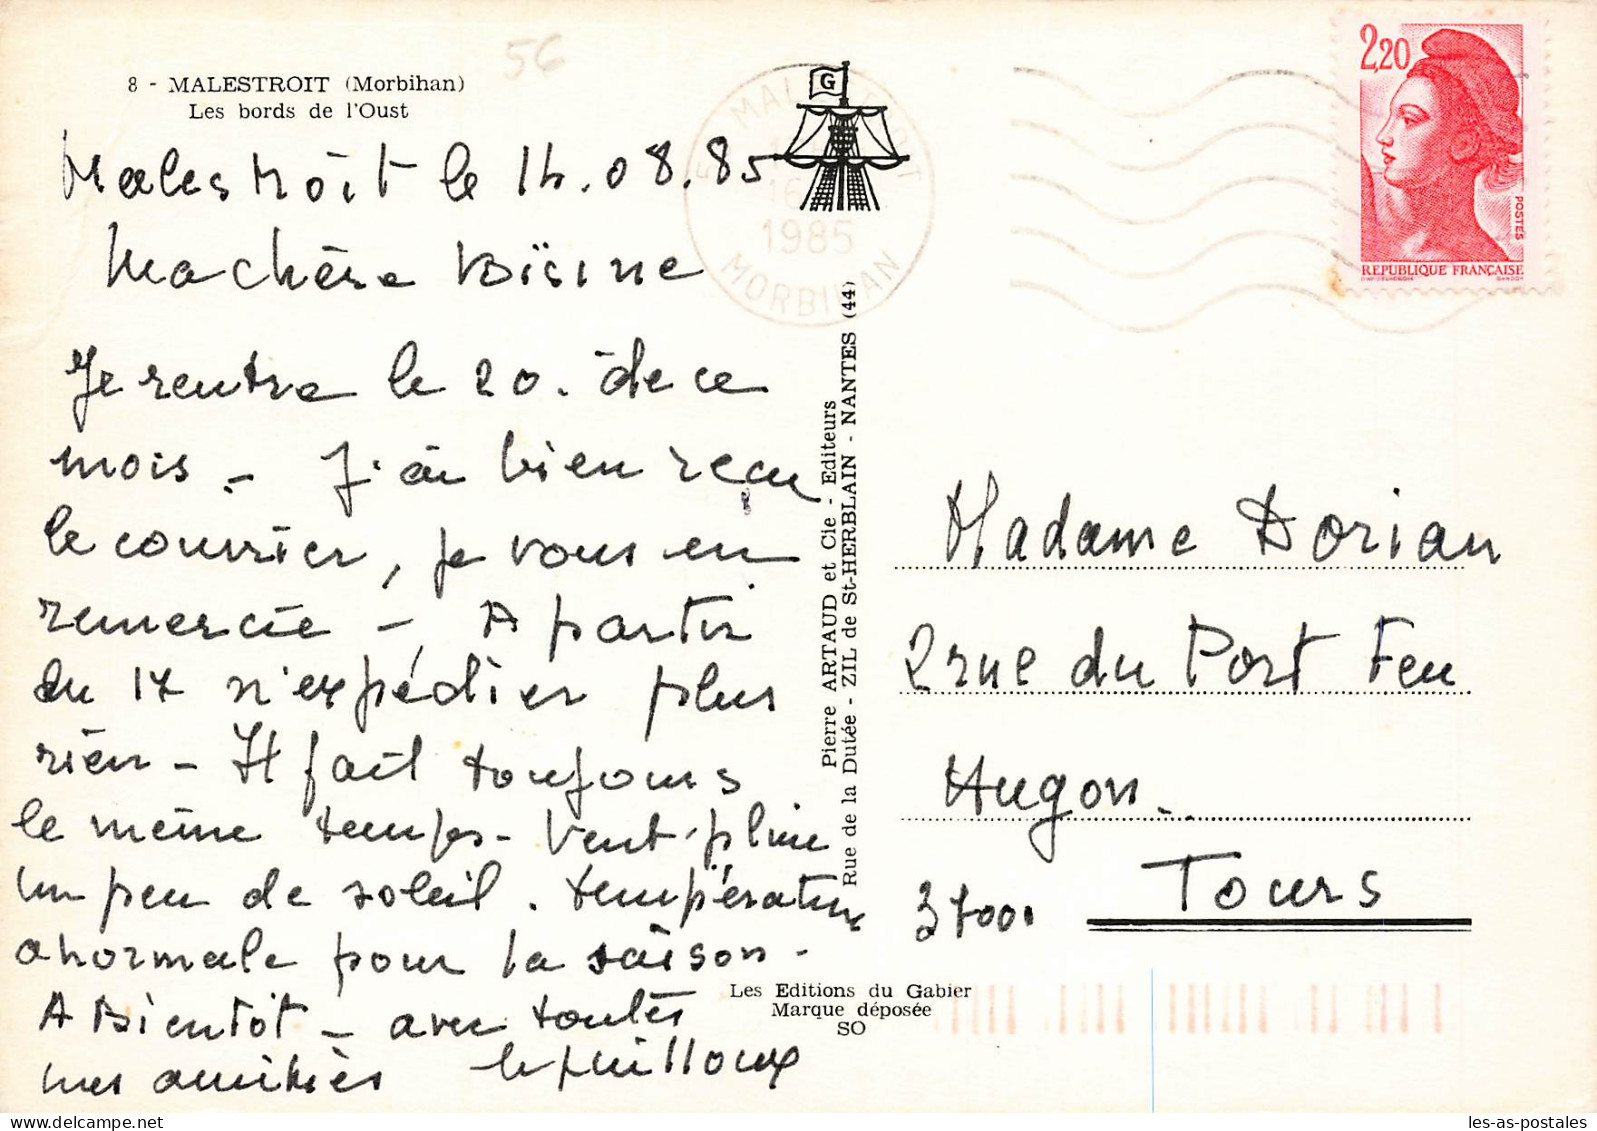 56
8 - MALESTROIT (Morbihan)
Les bords de l'Oust
Malestroit le 14.08.85
Ma chère
Je rentre le 20. de ce
mois - J'ai bien reçu
le courrier, je vous en
remercie - A partir
du 17 n'expédier plus
rien - Il fait toujours
le même temps - Vent pluie
un peu de soleil. température
anormale pour la saison -
A Bientôt - avec toutes
mes amitiés
G
MALESTROIT
16
1985
MORBIHAN
Pierre ARTAUD et Cie - Editeurs
Rue de la Dutée - ZIL de St-HERBLAIN - NANTES (44)
2,20
POSTES
REPUBLIQUE FRANÇAISE
Madame Dorian
2 rue du Port Feu
Hugon.
37000 Tours
Les Editions du Gabier
Marque déposée
SO
les-as-postales